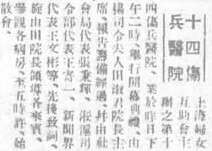 十四傷
兵醫院
上海婦女
互助會主
辦之第十
四傷兵醫院、業於昨日下
午二時、舉行開幕典禮、由
司令夫人田淑君院長主
席、報告籌備經過、幷由社
會局代表張秉輝、淞滬司
令部代表王寄一、新聞界
代表王文彬等、先後致詞、
由田院長領導各來賓、
參觀各病房、至五時許、始
散會。